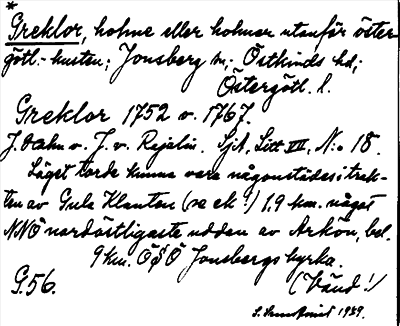 *
Greklor, holme eller holmar utanför öster-
götl.-kusten; Jonsberg sn; Östkinds hd;
Östergötl. l.
Greklor 1752 o. 1767.
J. Dahn o. J. v. Rejelin. Sjk, Litt VII, N:o 18.
Läget torde kunna vara någonstädes i trak-
ten av Gula Klanten (se ek!) 1,9 km. något
NNÖ nordöstligaste udden av Arkön, bel.
9 km. ÖSÖ Jonsbergs kyrka.
G.56.
(Vänd!)
1939.